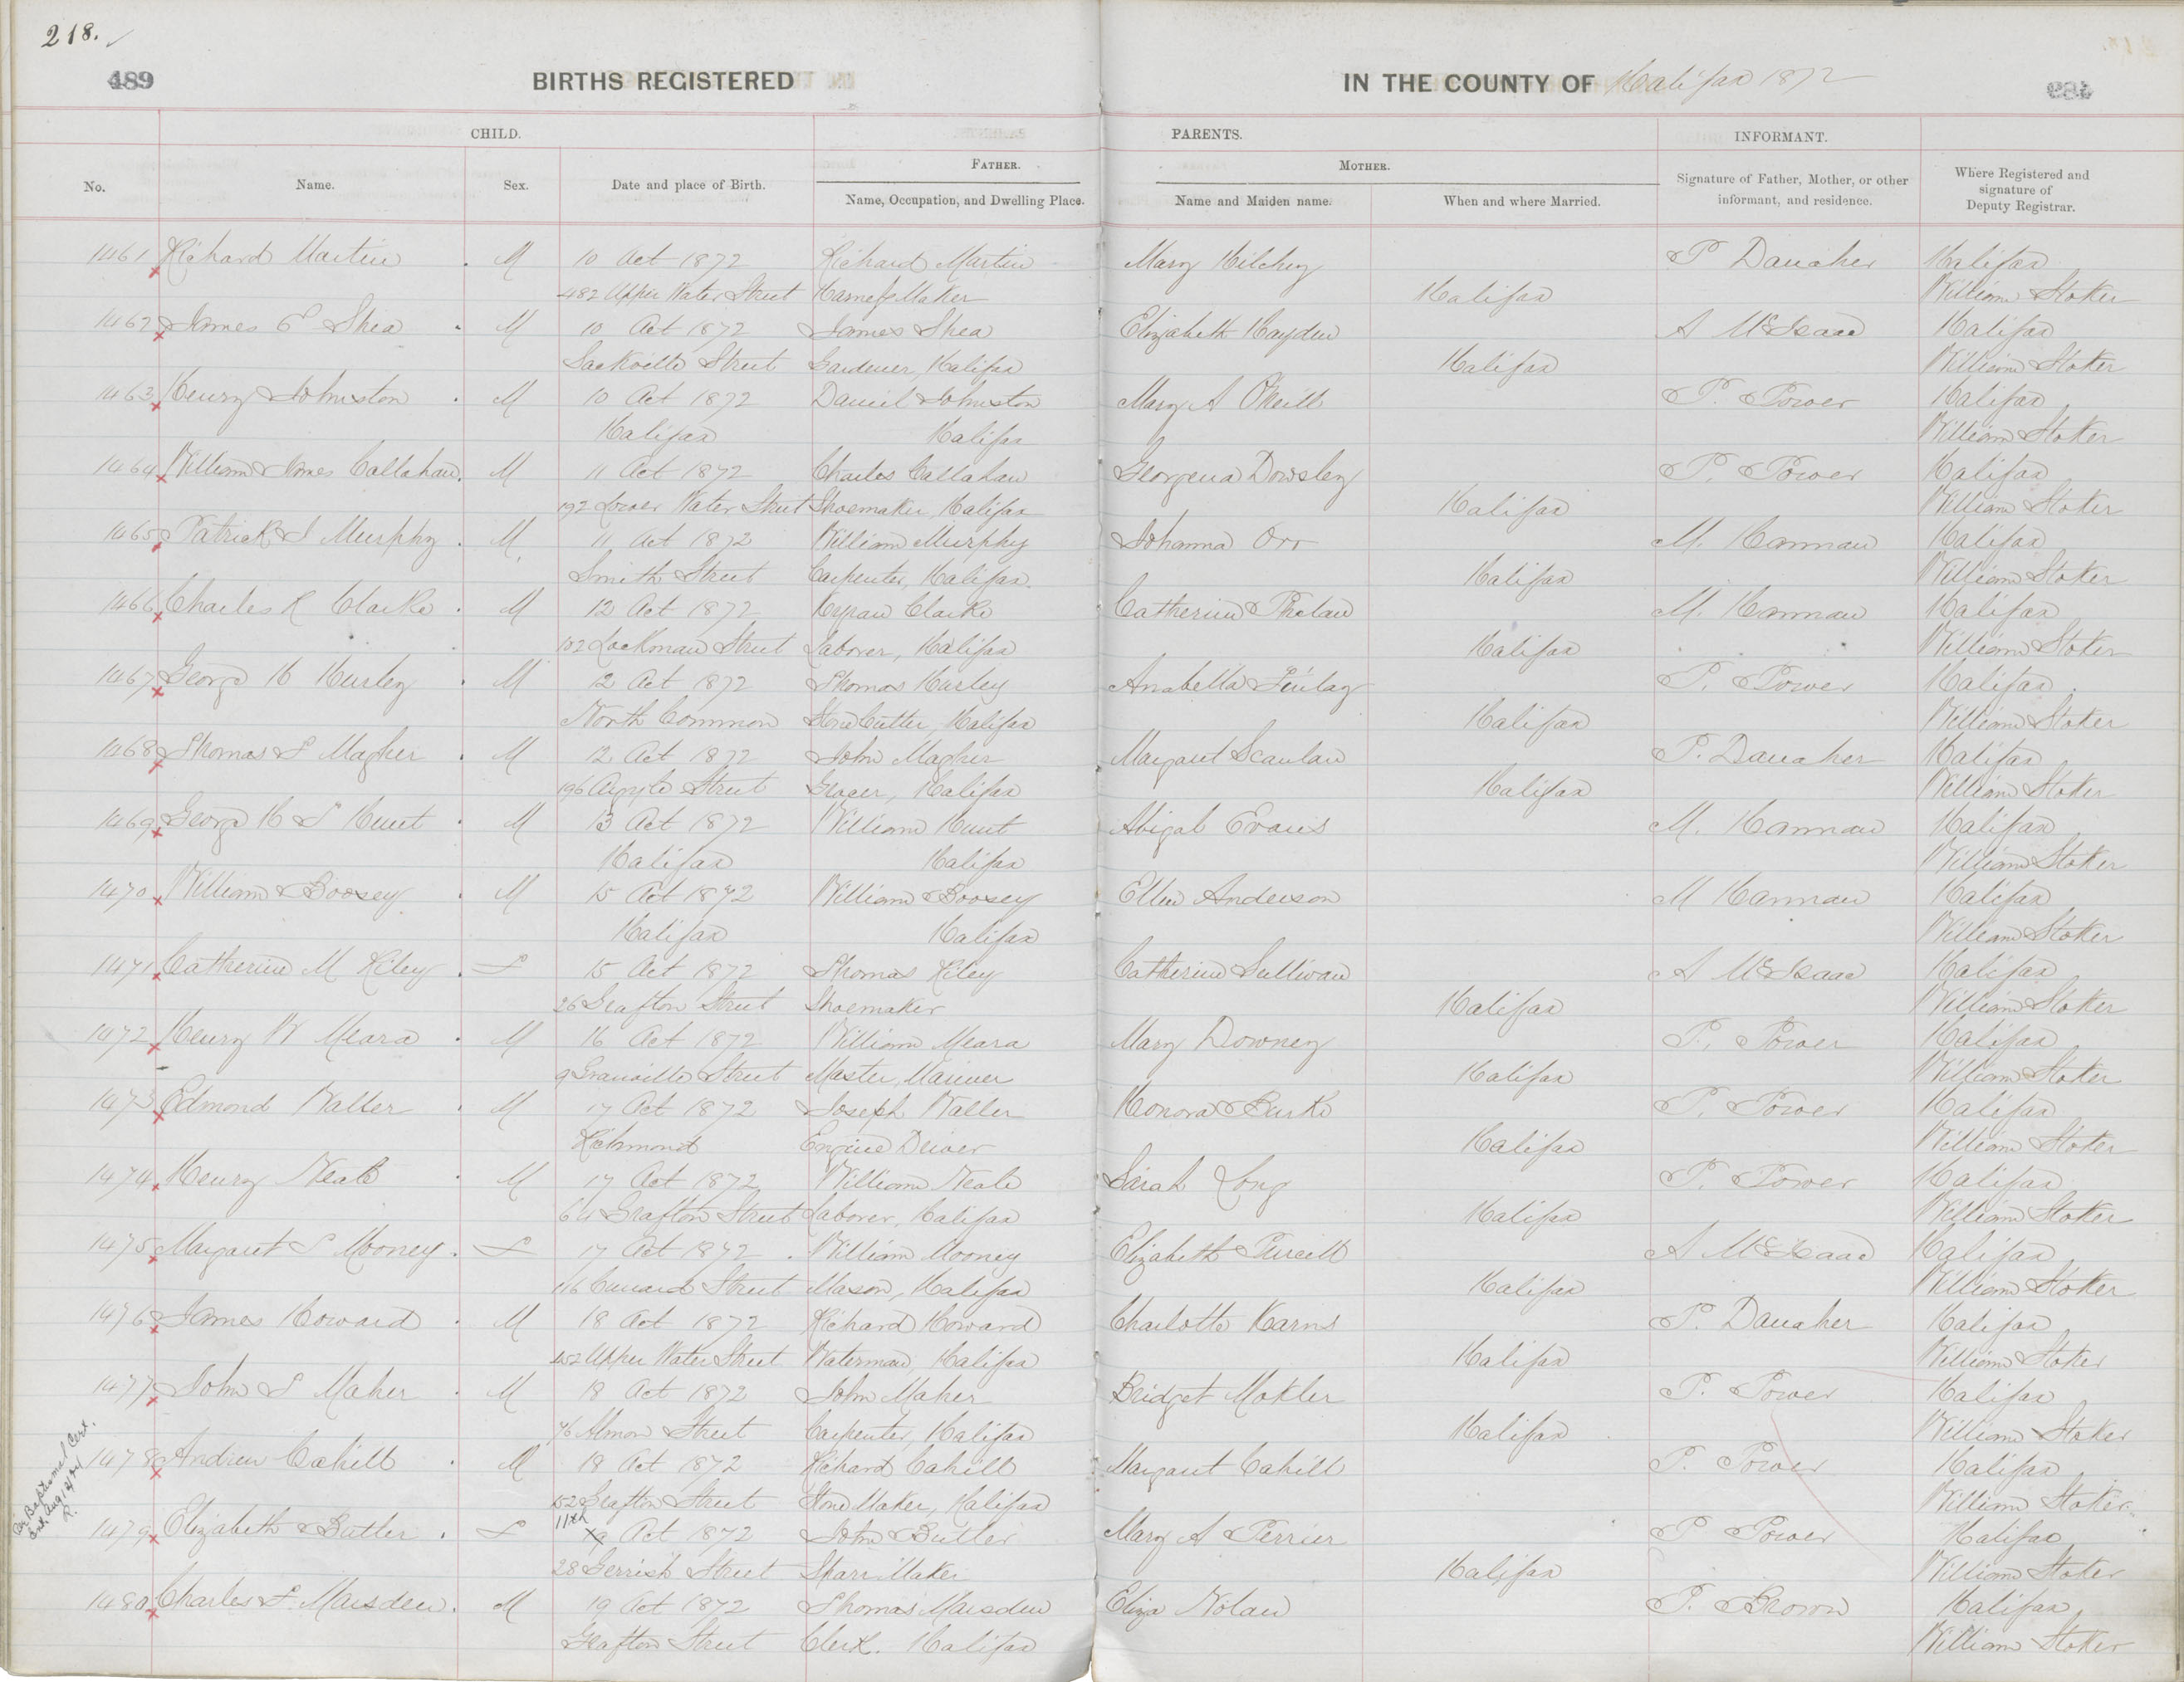 218.
489
BIRTHS REGISTERED IN THE COUNTY OF Halifax 1872
CHILD. PARENTS. INFORMANT.
FATHER. MOTHER.
No. Name. Sex. Date and place of Birth. Name, Occupation, and Dwelling Place. Name and Maiden name. When and where Married. Signature of Father, Mother, or other informant, and residence. Where Registered and signature of Deputy Registrar.
1461 Richard Martin M 10 Oct 1872 Richard Martin Mary Hilchey P Danaher Halifax
482 Upper Water Street Harness Maker Halifax William Stoker
1462 James E Shea M 10 Oct 1872 James Shea Elizabeth Hayden A McIsaac Halifax
Sackville Street Gardener, Halifax Halifax William Stoker
1463 Henry Johnston M 10 Oct 1872 Daniel Johnston Mary A O'Neill P. Power Halifax
Halifax Halifax William Stoker
1464 William James Callahan M 11 Oct 1872 Charles Callahan Georgena Dowsley P. Power Halifax
192 Lower Water Street Shoemaker, Halifax Halifax William Stoker
1465 Patrick J Murphy M 11 Oct 1872 William Murphy Johanna Orr M. Hannan Halifax
Smith Street Carpenter, Halifax. Halifax William Stoker
1466 Charles R Clarke M 12 Oct 1872 Clarke Catherine Phelan M. Hannan Halifax
102 Lockman Street Laborer, Halifax Halifax William Stoker
1467 George H Hurley M 12 Oct 1872 Thomas Hurley Anabella Finlay P. Power Halifax
North Common Stone Cutter, Halifax Halifax William Stoker
1468 Thomas S Magher M 12 Oct 1872 John Magher Margaret Scanlan P. Danaher Halifax
196 Argyle Street Grocer, Halifax Halifax William Stoker
1469 George H S Hunt M 13 Oct 1872 William Hunt Abigal Evans M. Hannan Halifax
Halifax Halifax William Stoker
1470 William Boosey M 15 Oct 1872 William Boosey Ellen Anderson M Hannan Halifax
Halifax Halifax William Stoker
1471 Catherine M Kiley F 15 Oct 1872 Thomas Kiley Catherine Sullivan A McIsaac Halifax
26 Grafton Street Shoemaker Halifax William Stoker
1472 Henry W Meara M 16 Oct 1872 William Meara Mary Downey P. Power Halifax
9 Granville Street Master, Mariner Halifax William Stoker
1473 Edmond Waller M 17 Oct 1872 Joseph Waller Honora Burke P. Power Halifax
Richmond Engine Driver Halifax William Stoker
1474 Henry Neale M 17 Oct 1872 William Neale Sarah Long P. Power Halifax
64 Grafton Street Laborer, Halifax Halifax William Stoker
1475 Margaret S Mooney. F 17 Oct 1872. William Mooney Elizabeth Purcell A McIsaac Halifax
116 Cunard Street Mason, Halifax Halifax William Stoker
1476 James Howard M 18 Oct 1872 Richard Howard Charlotte Karns P. Danaher Halifax
452 Upper Water Street Waterman, Halifax Halifax William Stoker
1477 John S Maher M 18 Oct 1872 John Maher Bridget Mokler P. Power Halifax
76 Almon Street Carpenter, Halifax Halifax William Stoker
1478 Andrew Cahill M 18 Oct 1872 Richard Cahill Margaret Cahill P. Power Halifax
152 Grafton Street Stone Maker, Halifax William Stoker
Cor. Baptismal Cert.
Ent. Aug 12/24
R.
11th
1479 Elizabeth Butler. F Oct 1872 John Butler Mary A Perrier P Power Halifax
28 Gerrish Street Spar Maker Halifax William Stoker
1480 Charles F Marsden. M 19 Oct 1872 Thomas Marsden Eliza Nolan P. Brown Halifax
Grafton Street Clerk. Halifax William Stoker